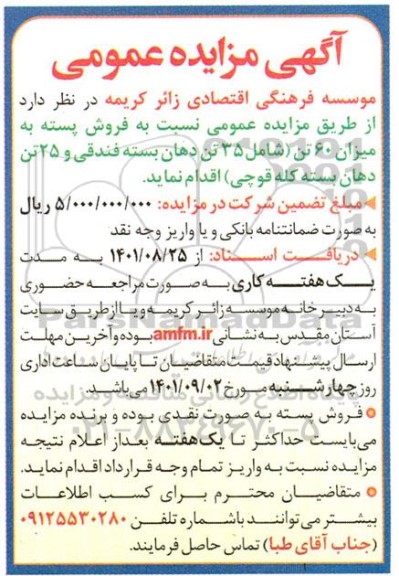 آگهی مزایده عمومی
موسسه فرهنگی اقتصادی زائر کریمه در نظر دارد
از طریق مزایده عمومی نسبت به فروش پسته به
میزان ۶۰ تن (شامل ۳۵ تن دهان بسته فندقی و ۲۵تن
دهان بسته کله قوچی) اقدام نماید.
مبلغ تضمین شرکت در مزایده: ۵/۰۰۰/۰۰۰/۰۰۰ ریال
به صورت ضمانتنامه بانکی و یا واریز وجه نقد
دریافت اسناد: از ۱۴۰۱/۰۸/۲۵ به مدت
یک هفته کاری به صورت مراجعه حضوری
به دبیرخانه موسسه زائر کریمه و یا از طریق سایت
آستان مقدس به نشانی amfm.ir بوده و آخرین مهلت
ارسال پیشنهاد قیمت متقاضیان تا پایان ساعت اداری
روز چهارشنبه مورخ ۱۴۰۱/۰۹/۰۲ می باشد.
فروش پسته به صورت نقدی بوده و برنده مزایده
می‌بایست حداکثر تا یک‌هفته بعد از اعلام نتیجه
مزایده نسبت به واریز تمام وجه قرارداد اقدام نماید.
متقاضیان محترم برای کسب اطلاعات
بیشتر می‌توانند با شماره تلفن ۰۹۱۲۵۵۳۰۲۸۰
(جناب آقای طبا) تماس حاصل فرمایند.
ParsNamadData
۰۲۱-۸۸۳۴۹۶۷۰-۵